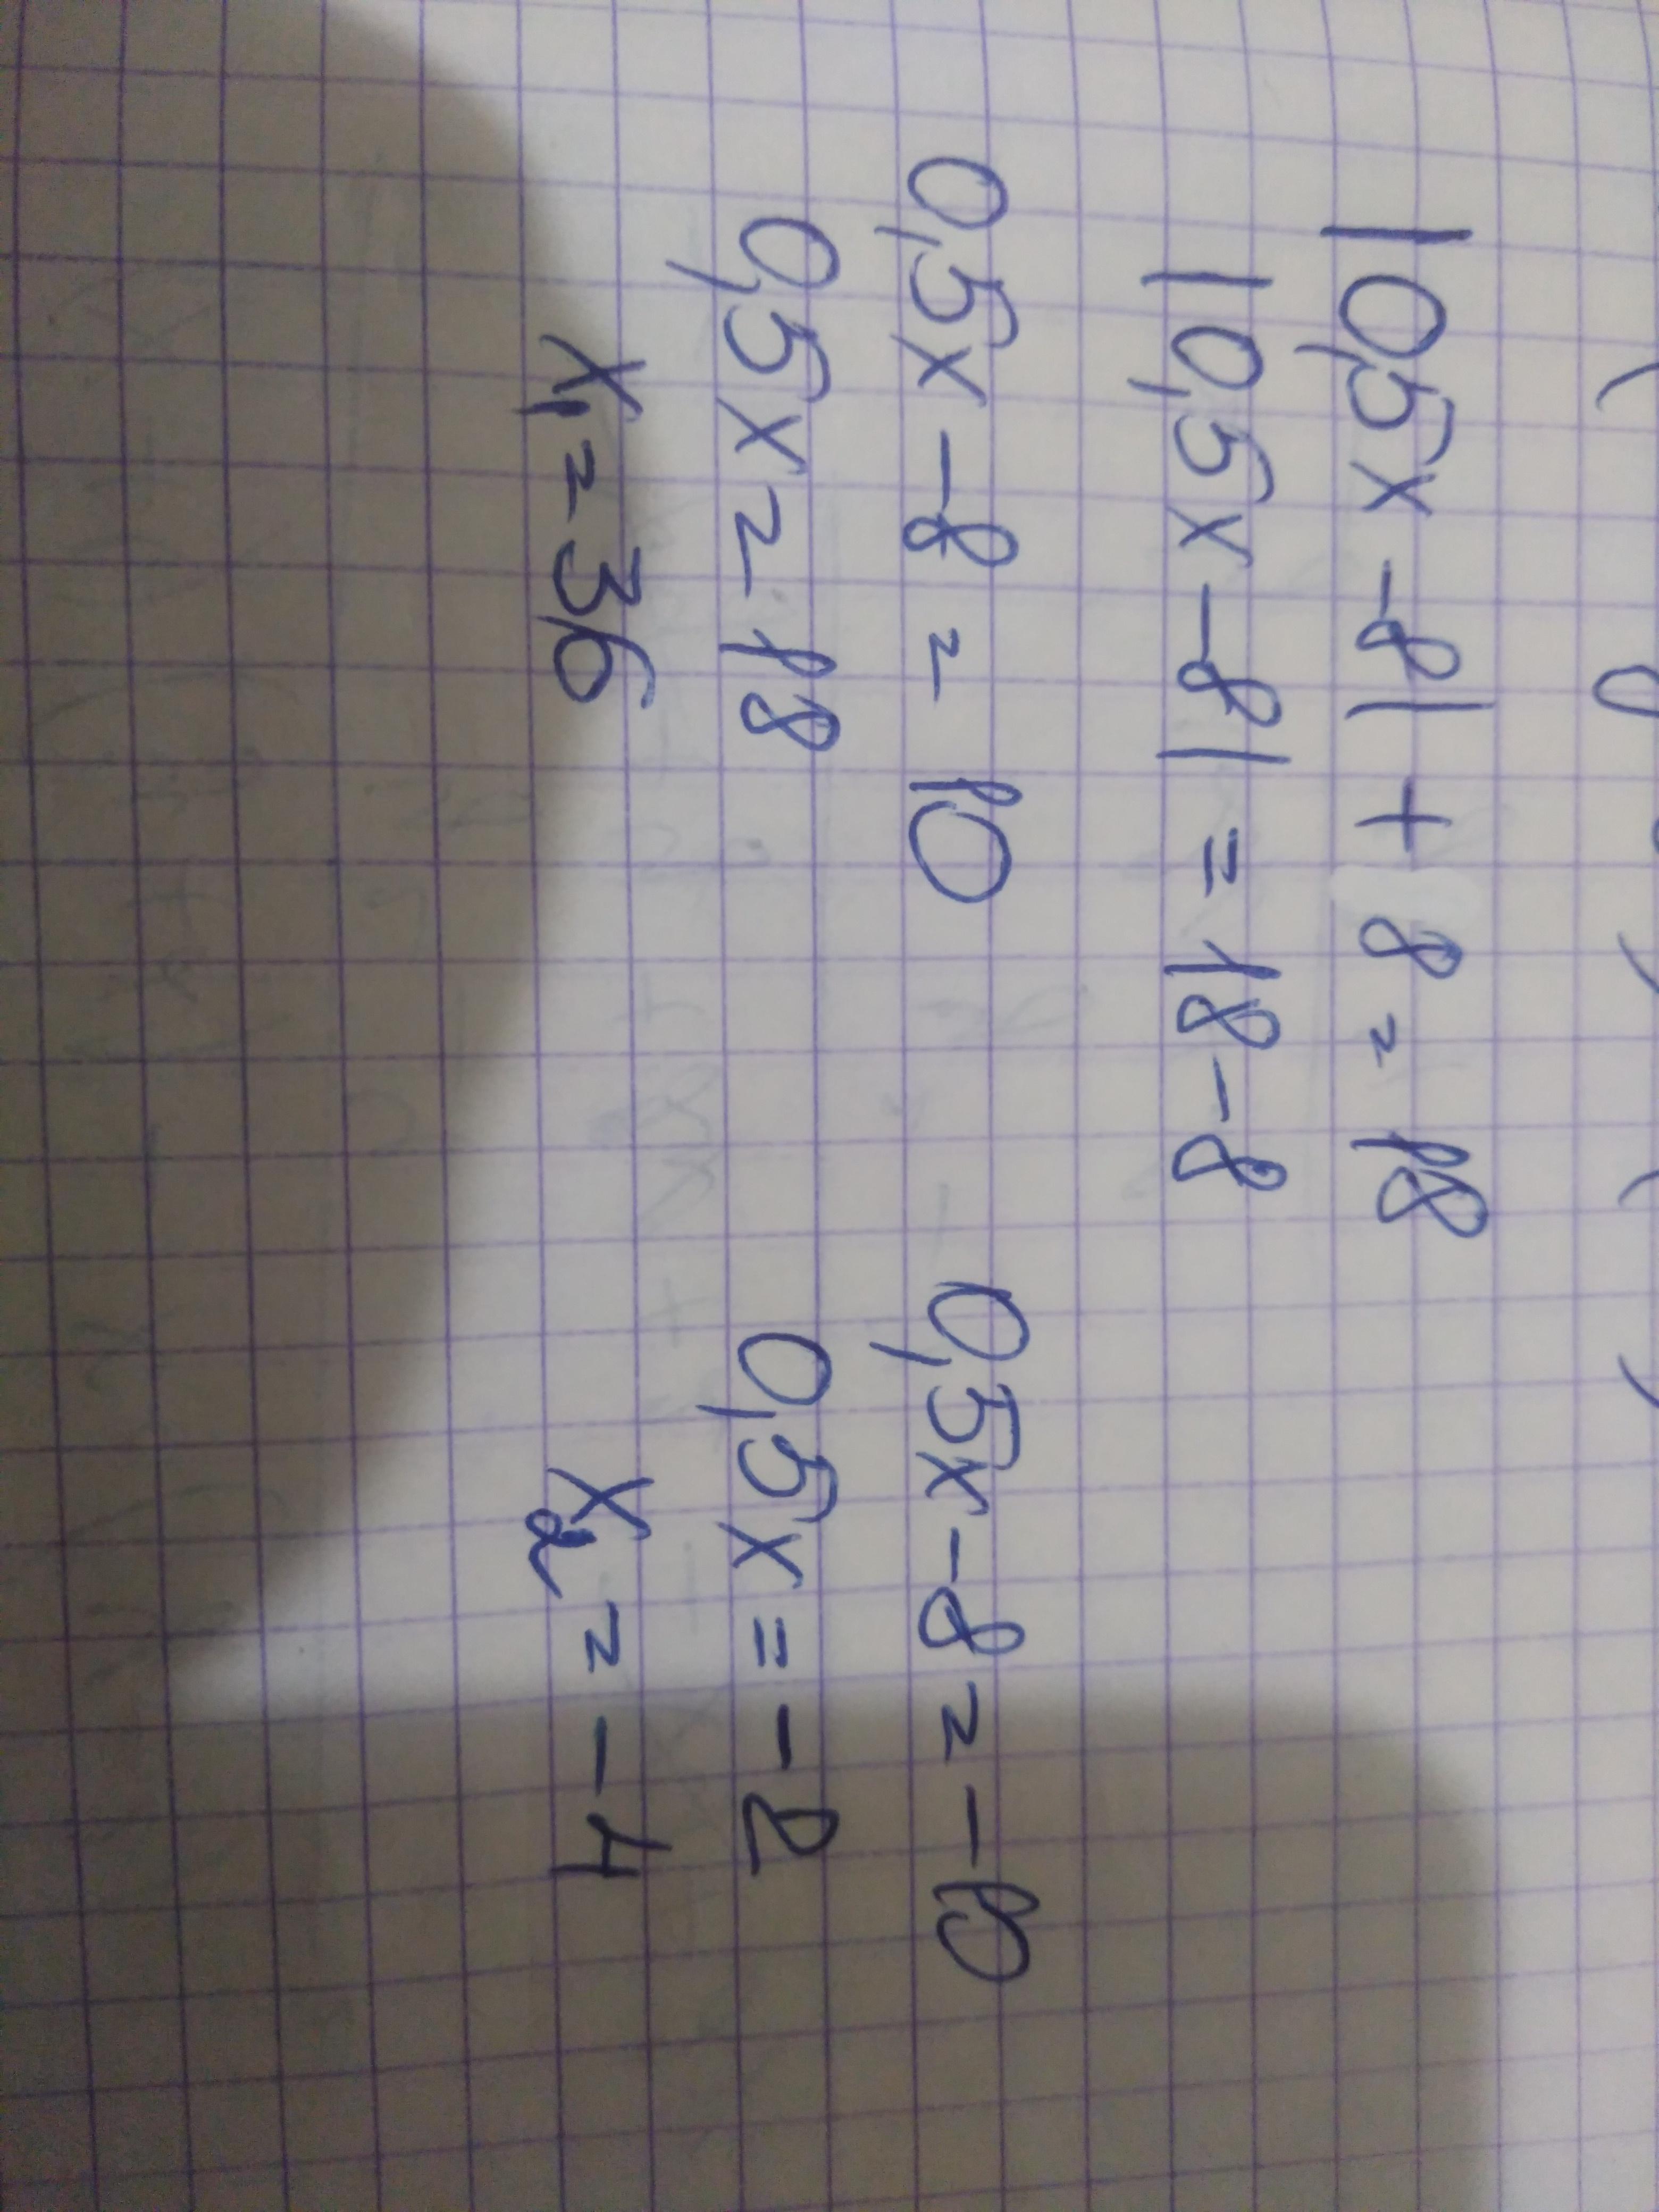 |0,5x - 8| + 8 = 18
|0,5x - 8| = 18 - 8
0,5x - 8 = 10 0,5x - 8 = -10
0,5x = 18 0,5x = -2
x₁ = 36 x₂ = -4